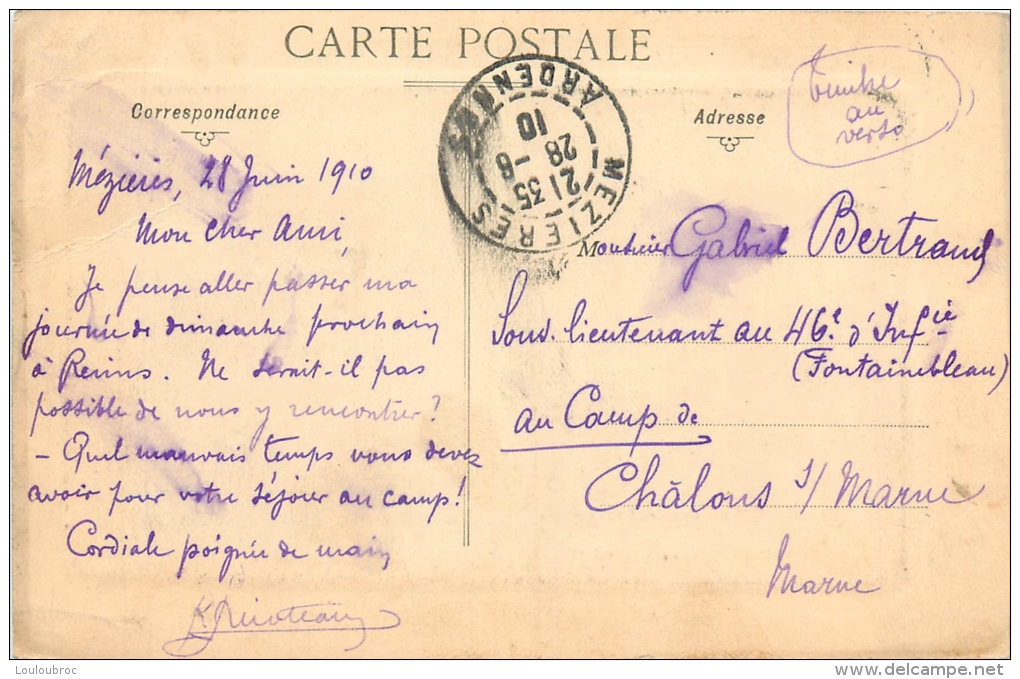 CARTE POSTALE
Correspondance
Adresse
timbre
au
verso
MEZIERES
ARDENNES
21 35
28 -6
10
Mézières, 28 Juin 1910
Mon cher Ami,
Je pense aller passer ma
journée de dimanche prochain
à Reims. Ne serait-il pas
possible de nous y rencontrer?
- Quel mauvais temps vous devez
avoir pour votre séjour au camp!
Cordiale poignée de main
Monsieur Gabriel Bertrand
Sous-lieutenant au 46e d'Infie
(Fontainebleau)
au Camp de
Châlons s/ Marne
Marne
Louloubroc
www.delcampe.net